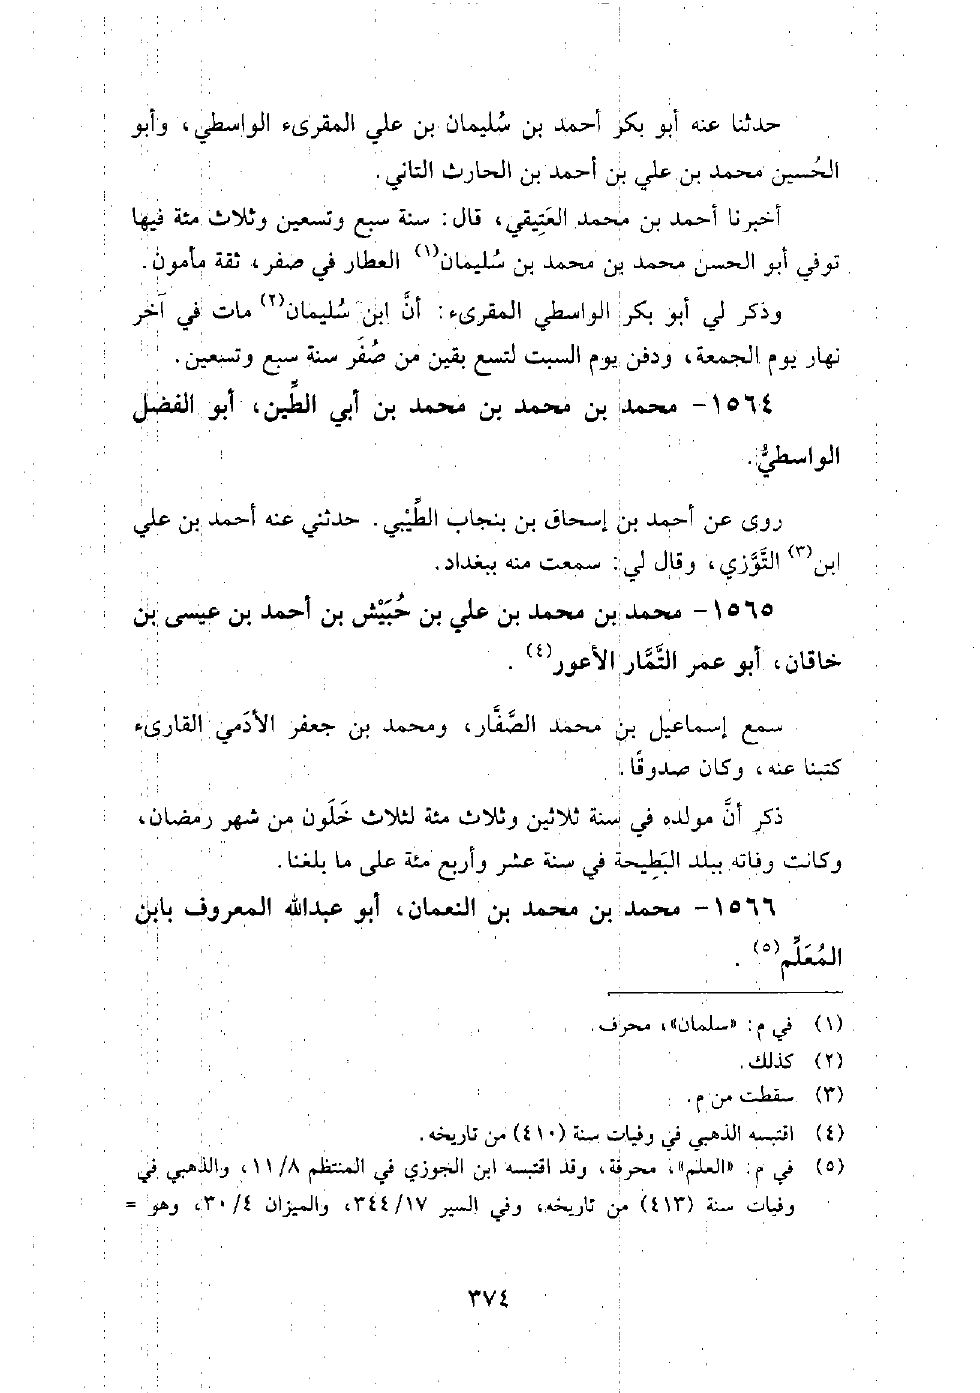 حدثنا عنه أبو بكر أحمد بن سُليمان بن علي المقرىء الواسطي، وأبو
الحُسين محمد بن علي بن أحمد بن الحارث التاني.
أخبرنا أحمد بن محمد العَتِيقي، قال: سنة سبع وتسعين وثلاث مئة فيها
توفي أبو الحسن محمد بن محمد بن سُليمان(١) العطار في صفر، ثقة مأمون.
وذكر لي أبو بكر الواسطي المقرىء: أنَّ ابن سُليمان(٢) مات في آخر
نهار يوم الجمعة، ودفن يوم السبت لتسع بقين من صُفَر سنة سبع وتسعين.
١٥٦٤- محمد بن محمد بن محمد بن أبي الطِّين، أبو الفضل
الواسطيُّ.
روى عن أحمد بن إسحاق بن بنجاب الطِّيْبي. حدثني عنه أحمد بن علي
ابن(٣) التَّوَّزي، وقال لي: سمعت منه ببغداد.
١٥٦٥- محمد بن محمد بن علي بن حُبَيْش بن أحمد بن عيسى بن
خاقان، أبو عمر التَّمَّار الأعور(٤).
سمع إسماعيل بن محمد الصَّفَّار، ومحمد بن جعفر الأدَمي القارىء
كتبنا عنه، وكان صدوقًا.
ذكر أنَّ مولده في سنة ثلاثين وثلاث مئة لثلاث خَلَون من شهر رمضان،
وكانت وفاته ببلد البَطِيحة في سنة عشر وأربع مئة على ما بلغنا.
١٥٦٦- محمد بن محمد بن النعمان، أبو عبدالله المعروف بابن
المُعَلِّم(٥).
(١) في م: «سلمان»، محرف.
(٢) كذلك.
(٣) سقطت من م.
(٤) اقتبسه الذهبي في وفيات سنة (٤١٠) من تاريخه.
(٥) في م: «العلم»، محرفة، وقد اقتبسه ابن الجوزي في المنتظم ١١/٨، والذهبي في
وفيات سنة (٤١٣) من تاريخه، وفي السير ٣٤٤/١٧، والميزان ٣٠/٤، وهو =
٣٧٤